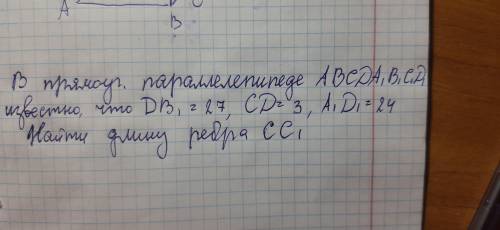 A
B
В прямоуг. параллелепипеде ABCDA₁B₁C₁D₁
известно, что DB₁ = 27, CD = 3, A₁D₁ = 24
Найти длину ребра CC₁